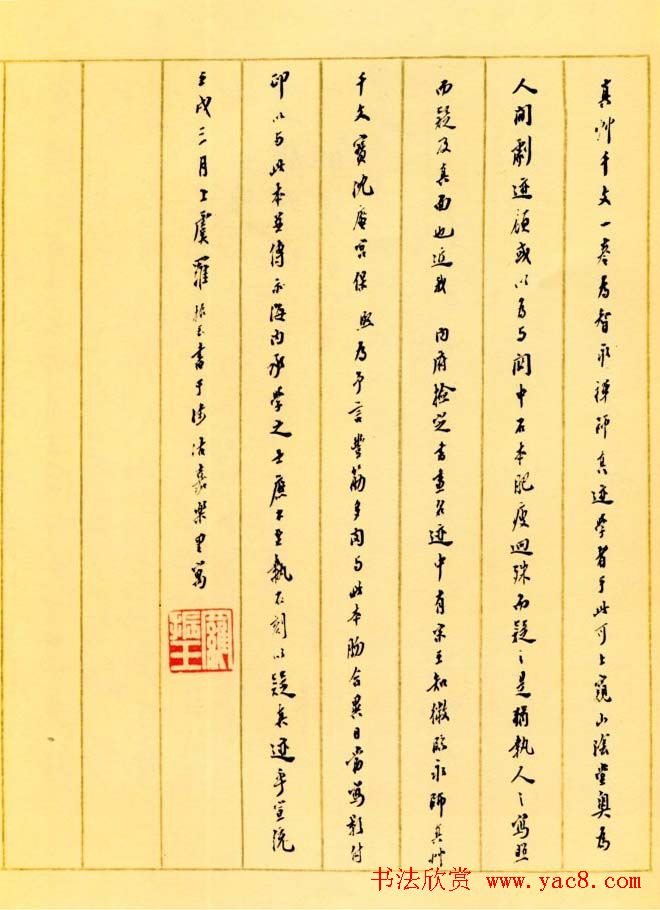 真艸千文一卷為智永禪師真迹學者于此可上窺山陰堂奧為
人間劇迹顧或以為与關中石本肥瘦迥殊而疑之是猶執人之寫照
而疑及真面也近我 內府檢定書畫名迹中有宋王知微臨永師真艸
千文寶沈庵宮保 熙為予言豐筋多肉与此本脗合異日當寫影付
印以与此本並傳示海内承學之士應不至執石刻以疑真迹乎宣統
壬戌三月上虞羅振玉書于津沽嘉樂里寓
羅振玉
书法欣赏 www.yac8.com